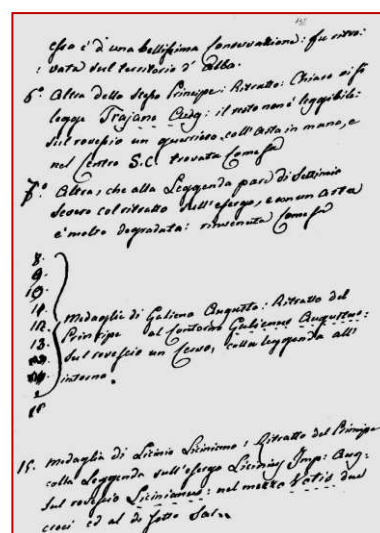 esso è d'una bellissima conservazione: fu ritro-
vata sul territorio d' Alba.
6.° Altra dello stesso Principe: Ritratto: Chiaro si
legge Trajano Aug: il resto non è leggibile:
sul rovescio un guerriero coll'Asta in mano, e
nel Centro S.C. trovata Come
7.° Altra, che alla Leggenda pare di Settimio
Severo col ritratto sull'esergo, e con un Asta
è molto degradata: rinvenuta Come
8.
9.
10.
11.
12.
13.
Medaglia di Galieno Augusto: Ritratto del
Principe al Contorno Galienus Augustus:
Sul rovescio un Cervo, colla leggenda all'
intorno.
15. Medaglia di Licinio Liciniano: Ritratto del Principe
colla Leggenda sull'esergo Licinius Imp: Aug:
sul rovescio Licinianus: nel mezzo Votis due
croci ed al di sotto